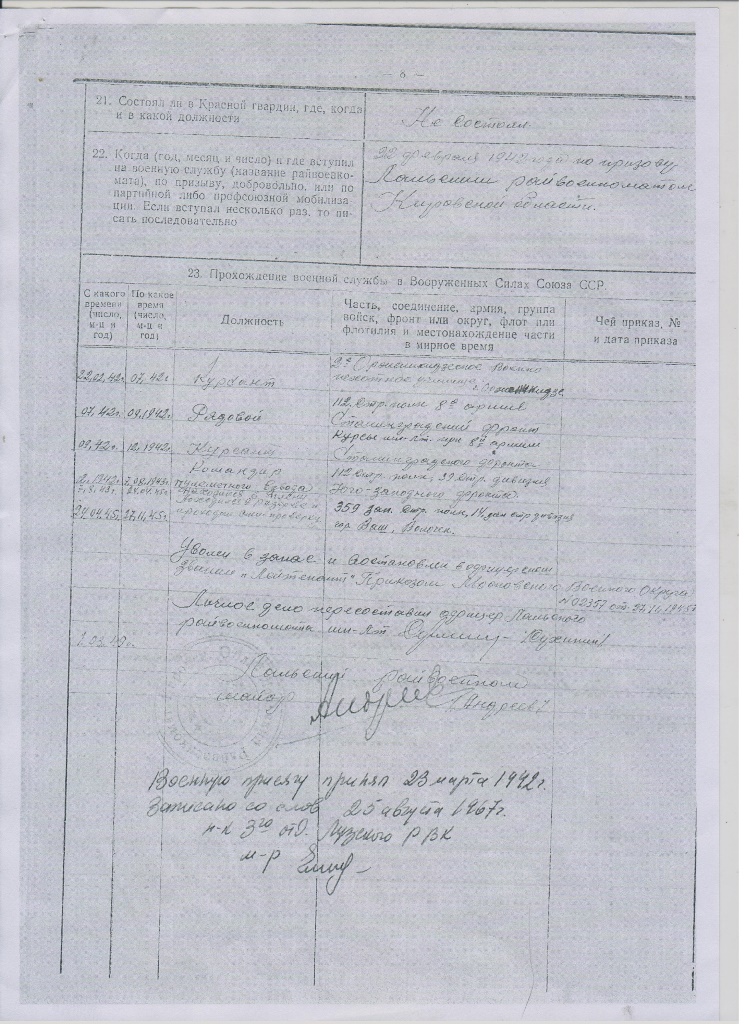 — 6 —
21. Состоял ли в Красной гвардии, где, когда
и в какой должности
Не состоял
22. Когда (год, месяц и число) и где вступил
на военную службу (название райвоенко-
мата), по призыву, добровольно, или по
партийной либо профсоюзной мобилиза-
ции. Если вступал несколько раз, то пи-
сать последовательно
22 февраля 1942 года по призыву
Лальским райвоенкоматом
Кировской области.
23. Прохождение военной службы в Вооруженных Силах Союза ССР.
С какого
времени
(число,
м-ц и
год)
По какое
время
(число,
м-ц и
год)
Должность
Часть, соединение, армия, группа
войск, фронт или округ, флот или
флотилия и местонахождение части
в мирное время
Чей приказ, №
и дата приказа
22.02.42г. 07.42г. Курсант
2е Орджоникидзевское Военно
пехотное училище г. Орджоникидзе
07.42г. 09.1942г. Рядовой
112 Стр. полк 8й армии
Сталинградский фронт
09.42г. 12.1942г. Курсант
Курсы мл. л-т. при 8й армии
Сталинградского фронта
Командир
пулеметного взвода
112 Стр. полк, 39 Стр. дивизия
Юго-западного фронта.
24.04.45г. 27.11.45г.
359 зап. стр. полк, 14 зап стр дивизия
гор Выш. Волочек.
Уволен в запас и восстановлен в офицерском
звании „Лейтенант" Приказом Московского Военного Округа
№ 02351 от 27.11.1945г
Личное дело пересоставил офицер Лальского
райвоенкомата мл. л-т
Лальский райвоенком
майор /Андреев/
Военную присягу принял 23 марта 1942г.
Записано со слов 25 августа 1967г.
н-к 3го отд. Лузского РВК
м-р